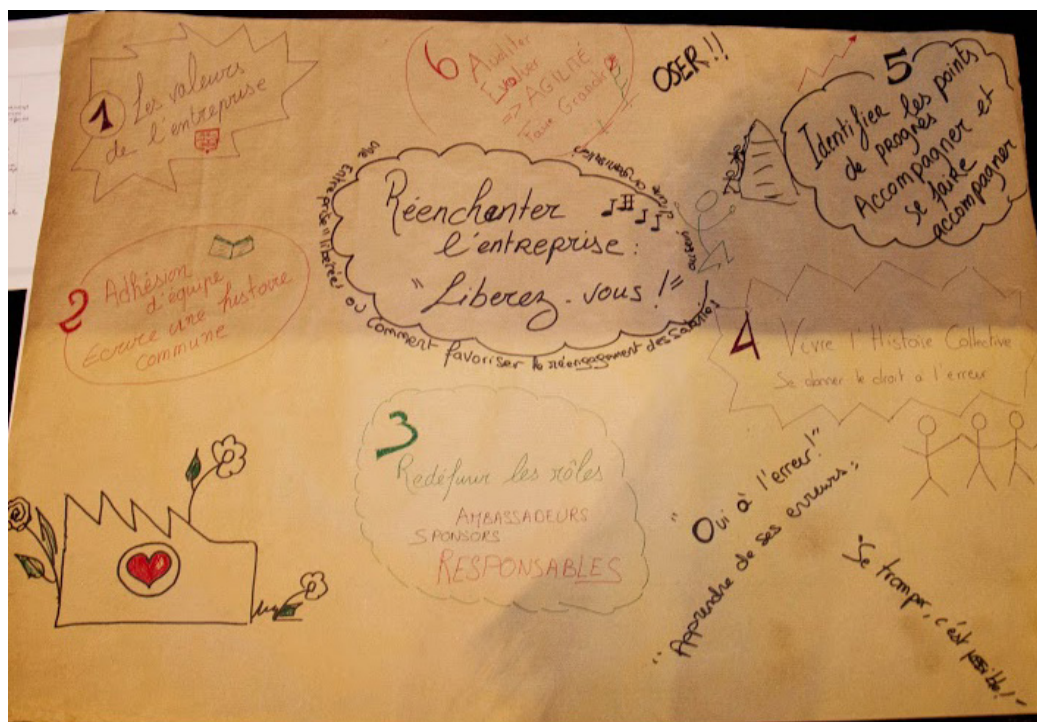 1
Les valeurs
de l'entreprise
6
Auditer
Evaluer
=> AGILITÉ
Faire Grandir
OSER!!
5
Identifier les points
de progrès
Accompagner et
se faire
accompagner
Réenchanter
l'entreprise :
"Liberez-vous !"
une Entreprise "libérée" ou comment favoriser le réengagement des salariés
2
Adhésion
d'équipe
Ecrire une histoire
commune
4
Vivre l'Histoire Collective
Se donner le droit a l'erreur
3
Redéfinir les rôles
AMBASSADEURS
SPONSORS
RESPONSABLES
"Oui à l'erreur!"
"Apprendre de ses erreurs"
"Se tromper, c'est possible!"